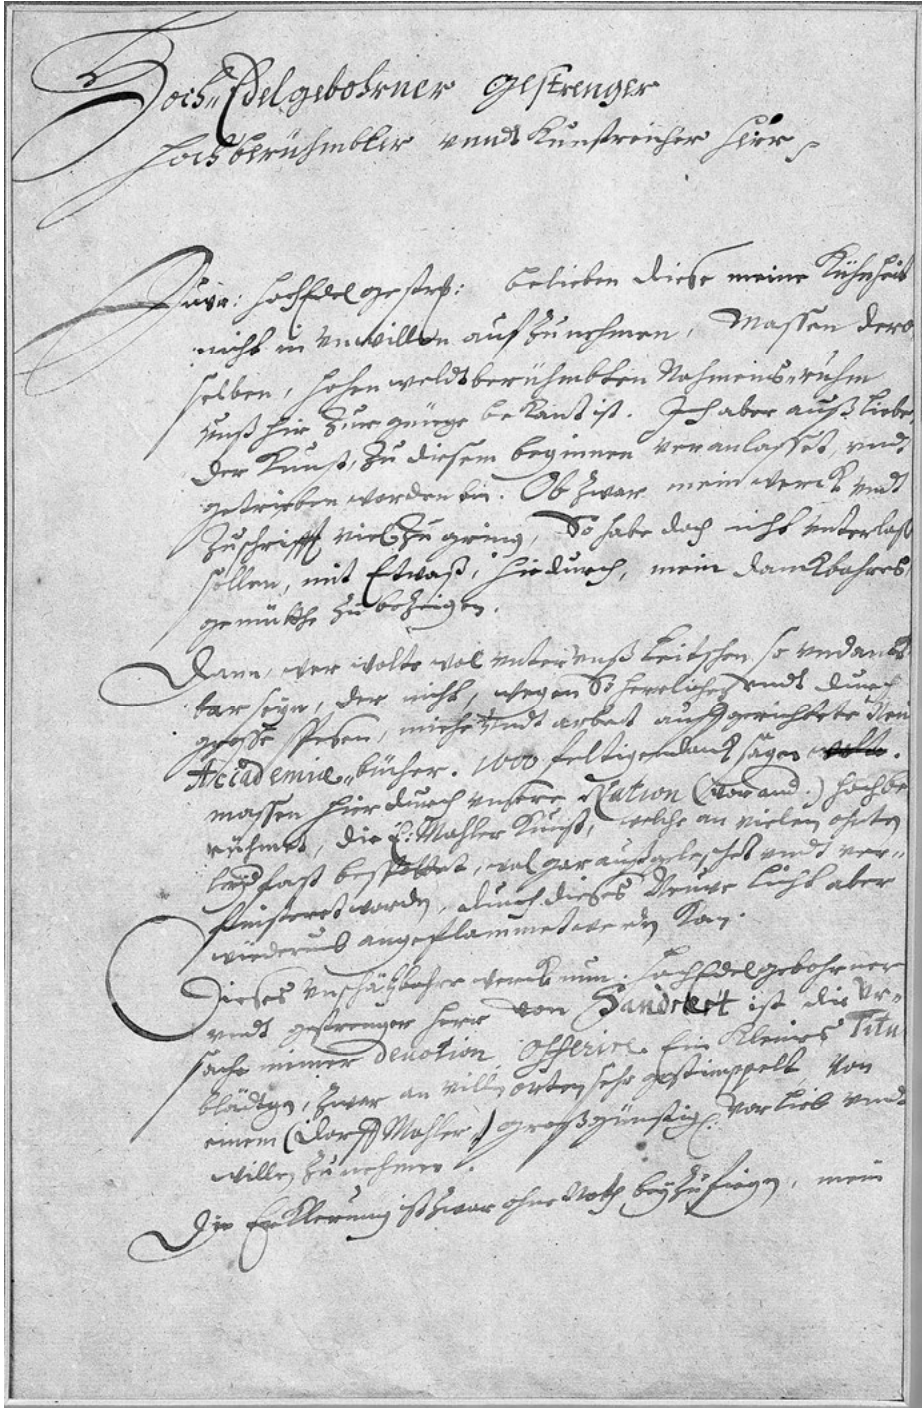 Hoch„Edelgebohrner gestrenger
Hochberühmbter vnndt Kunstreicher Herr
Euer: HochEdel gestrß: belieben diese meine Kühnheit
nicht in vnwillen auf zu nehmen, Massen dero
selben, hohen weldtberühmbten Nahmens„ruhm
vnß hir Zur gnüge bekant ist. Ich aber auß liebe
der Kunst, zu diesem beginnen veranlasset, vndt
getrieben worden bin. Ob zwar mein werck vndt
Zuschrifft viel zu gring, So habe doch nicht vnterlaß
sollen, mit Etwaß, hiedurch, mein danckbahres
gemüthe zu bezeigen.
Dann, wer wolte wol vnter vnß teitschen so vndanck
bar seyn, der nicht, wegen So herrliches vndt durch
grosse spesen, miehe vndt arbeit auffgerichtete Neu
Accademiæ„bücher. 1000 feltigen danck sagen .
massen hierdurch vnsere Nation hochbe
rühmet, die E: Mahler Kunst, welche an vielen orten
fast, wol gar außgeleschet vndt ver„
finstert worden, durch dieses Neuwe licht aber
wiederumb angeflammet werden kan.
Dieses vnschätzbahre werck nun. HochEdelgebohrner
vndt gestrenger Herr von Sandrart ist die Vr„
sache meiner devotion Offerire. Ein Kleines Titu
blädtgen, zwar an villen orten sehr gestimppelt, von
einem (Dorff Mahler,) großgünstig: vorlieb vndt
willen zu nehmen.
Die Erklerung ist zwar ohne Noth beyzufiegen, mein